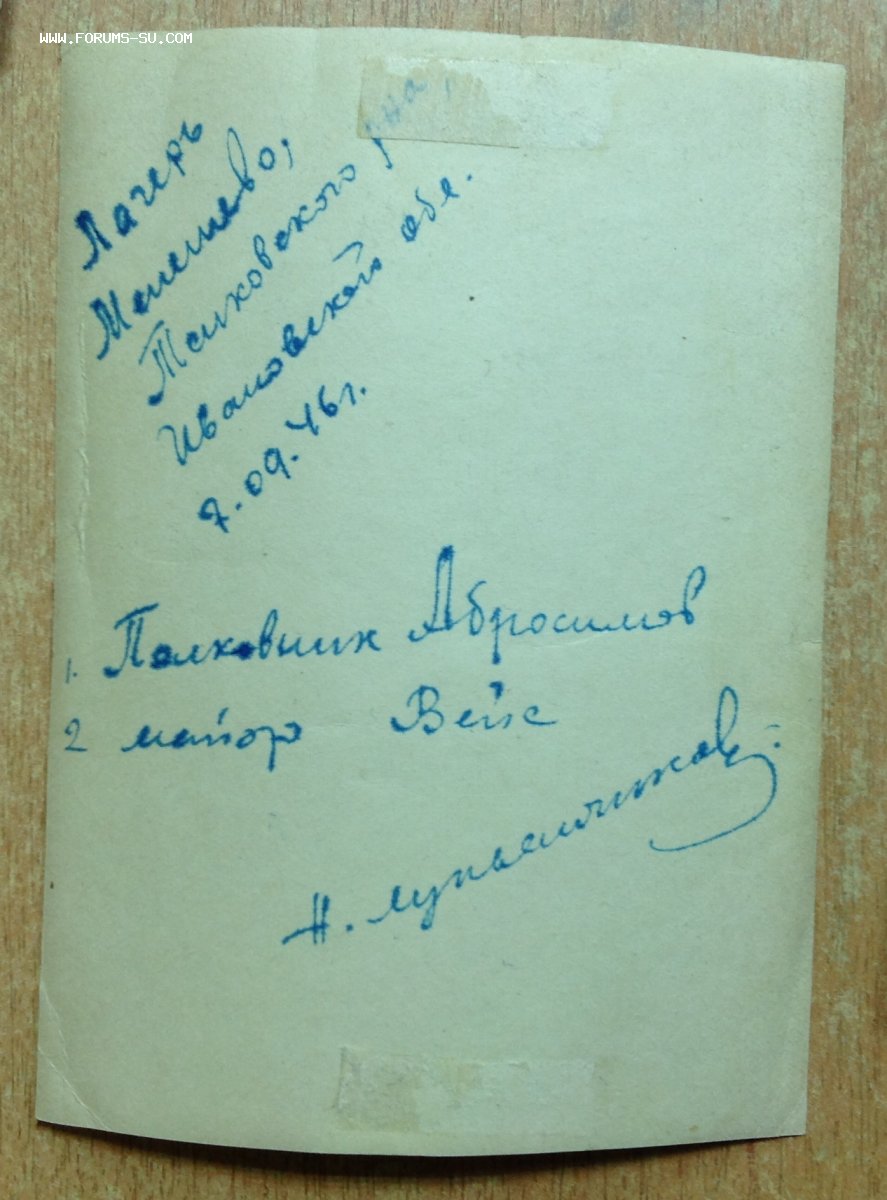 WWW.FORUMS-SU.COM
Лагерь
Тейковского р-на
Ивановской обл.
7.09.46г.
1. Полковник Абросимов
2 майор Вейс
Н.